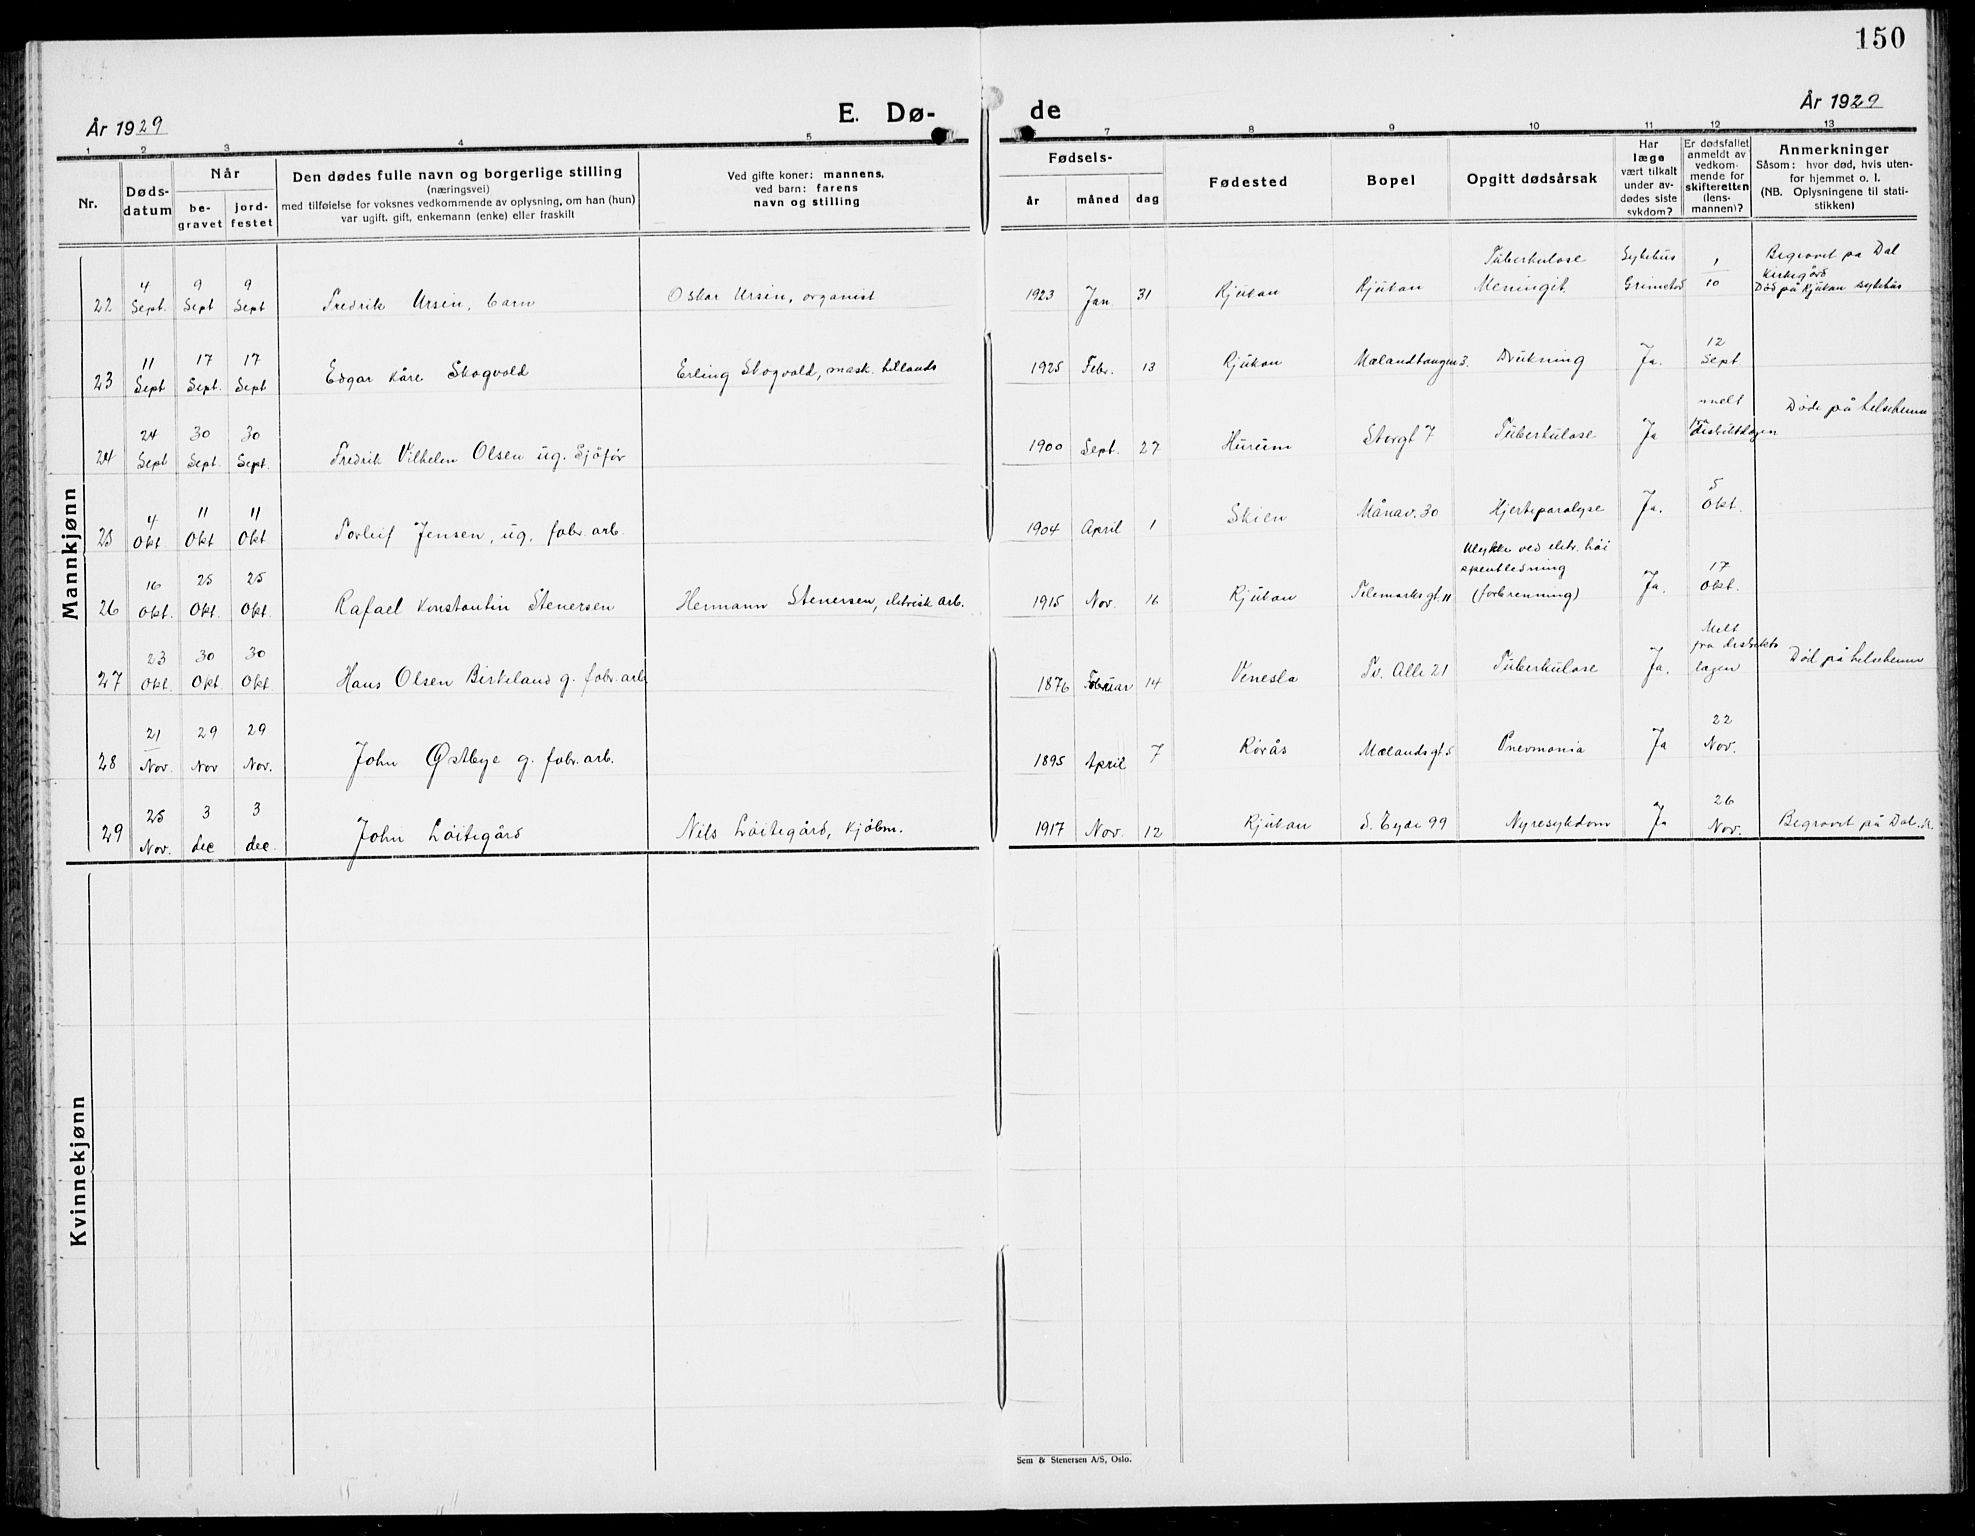 150
År 1929
E. Dø-
de
År 1929
1 2 3 4 5 7 8 9 10 11 12 13
Nr.
Døds-
datum
Når
be-
gravet
jord-
festet
Den dødes fulle navn og borgerlige stilling
(næringsvei)
med tilføielse for voksnes vedkommende av oplysning, om han (hun)
var ugift, gift, enkemann (enke) eller fraskilt
Ved gifte koner: mannens,
ved barn: farens
navn og stilling
Fødsels-
år
måned
dag
Fødested
Bopel
Opgitt dødsårsak
Har
læge
vært tilkalt
under av-
dødes siste
sykdom?
Er dødsfallet
anmeldt av
vedkom-
mende for
skifteretten
(lens-
mannen)?
Anmerkninger
Såsom: hvor død, hvis uten-
for hjemmet o. l.
(NB. Oplysningene til stati-
stikken)
Mannkjønn
22 4 Sept. 9 Sept 9 Sept Fredrik Ursin, barn Oskar Ursin, organist 1923 Jan 31 Rjukan Rjukan Tuberkulose Meningit. Sykehus 1/10 Begravet på Dal
Kirkegård
Død på Rjukan sykehus
23 11 Sept 17 Sept. 17 Sept. Edgar Kåre Skogvold Erling Skogvold, mask. 1925 Febr. 13 Rjukan Drukning Ja. 12 Sept.
24 24 Sept 30 Sept. 30 Sept. Fredrik Vilhelm Olsen ug. Sjåfør 1900 Sept. 27 Hurum Storgt 7 Tuberkulose Ja melt fra distriktslægen Døde på
25 4 Okt 11 Okt 11 Okt Torleif Jensen, ug. fabr. arb. 1904 April 1 Skien Månav. 30 Hjerteparalyse Ja. 5 Okt.
26 16 Okt. 25 Okt. 25 Okt. Rafael Konstantin Stenersen Hermann Stenersen, elektrisk arb. 1915 Nov. 16 Rjukan Telemarksgt. 11 Ulykke ved elektr. høi
spentledning
(forbrenning) Ja. 17 Okt.
27 23 Okt. 30 Okt 30 Okt Hans Olsen Birkeland g. fabr. arb 1876 Februar 14 Venesla Tv. Alle 21 Tuberkulose Ja. Melt
fra distrikts
lægen Død på
28 21 Nov. 29 Nov 29 Nov. John Østbye g. fabr. arb. 1895 April 7 Rørås Mælandsgt. 5 Pnevmonia Ja 22 Nov.
29 25 Nov. 3 dec 3 dec. John Løitegård Nils Løitegård, kjøbm. 1917 Nov. 12 Rjukan S. Eyde 99 Nyresykdom Ja 26 Nov. Begravet på Dal.
Kvinnekjønn
Sem & Stenersen A/S, Oslo.